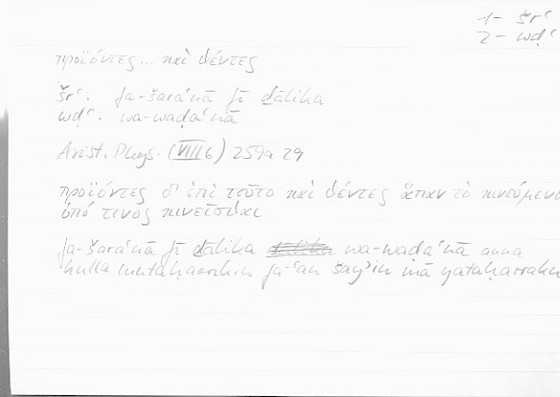 1- šrʿ
2- wḍʿ
προϊόντες... καὶ θέντες
šrʿ: fa-šaraʿnā fī ḏālika
wḍʿ: wa-waḍaʿnā
Arist. Phys. (VIII 6) 259a 29
προϊόντες δ' ἐπὶ τοῦτο καὶ θέντες ἅπαν τὸ κινούμενο
ὑπό τινος κινεῖσθαι
fa-šaraʿnā fī ḏālika wa-waḍaʿnā anna
kulla mutaḥarrikin fa-ʿan šayʾin mā yataḥarraku